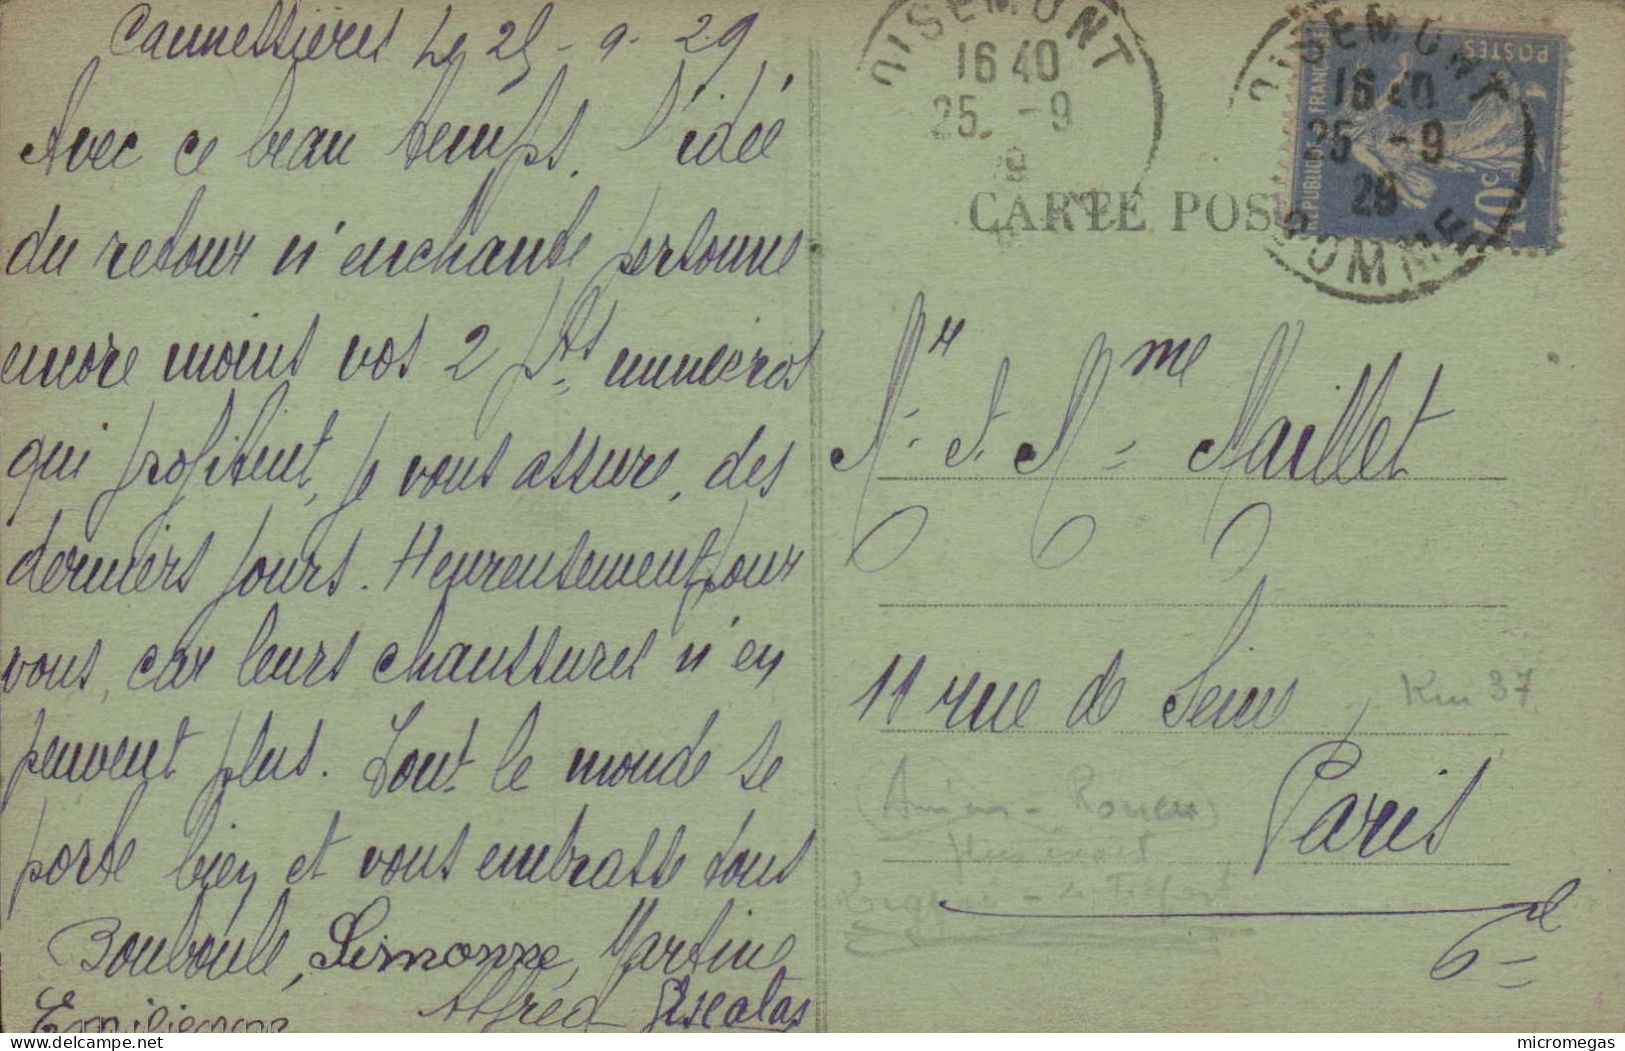 Cannessières Le 25-9-29
Avec ce beau temps. l'idée
du retour n'enchante personne
encore moins vos 2 pts numéros
qui profitent, je vous assure, des
derniers jours. Heureusement pour
vous, car leurs chaussures n'en
peuvent plus. Tout le monde se
porte bien et vous embrasse tous
Bouboule, Simonne, Martine
Emilienne Alfred
OISEMONT
16 40
25 -9
29
OISEMONT
16 40
25 -9
29
SOMME
REPUBLIQUE FRANCAISE
POSTES
40c
CARTE POS
Mr et Mme Maillet
11 rue de Seine
Km 37
Paris
6e
(Amiens - Rouen)
plus exact
Longpré - Le Tréport
www.delcampe.net
micromegas